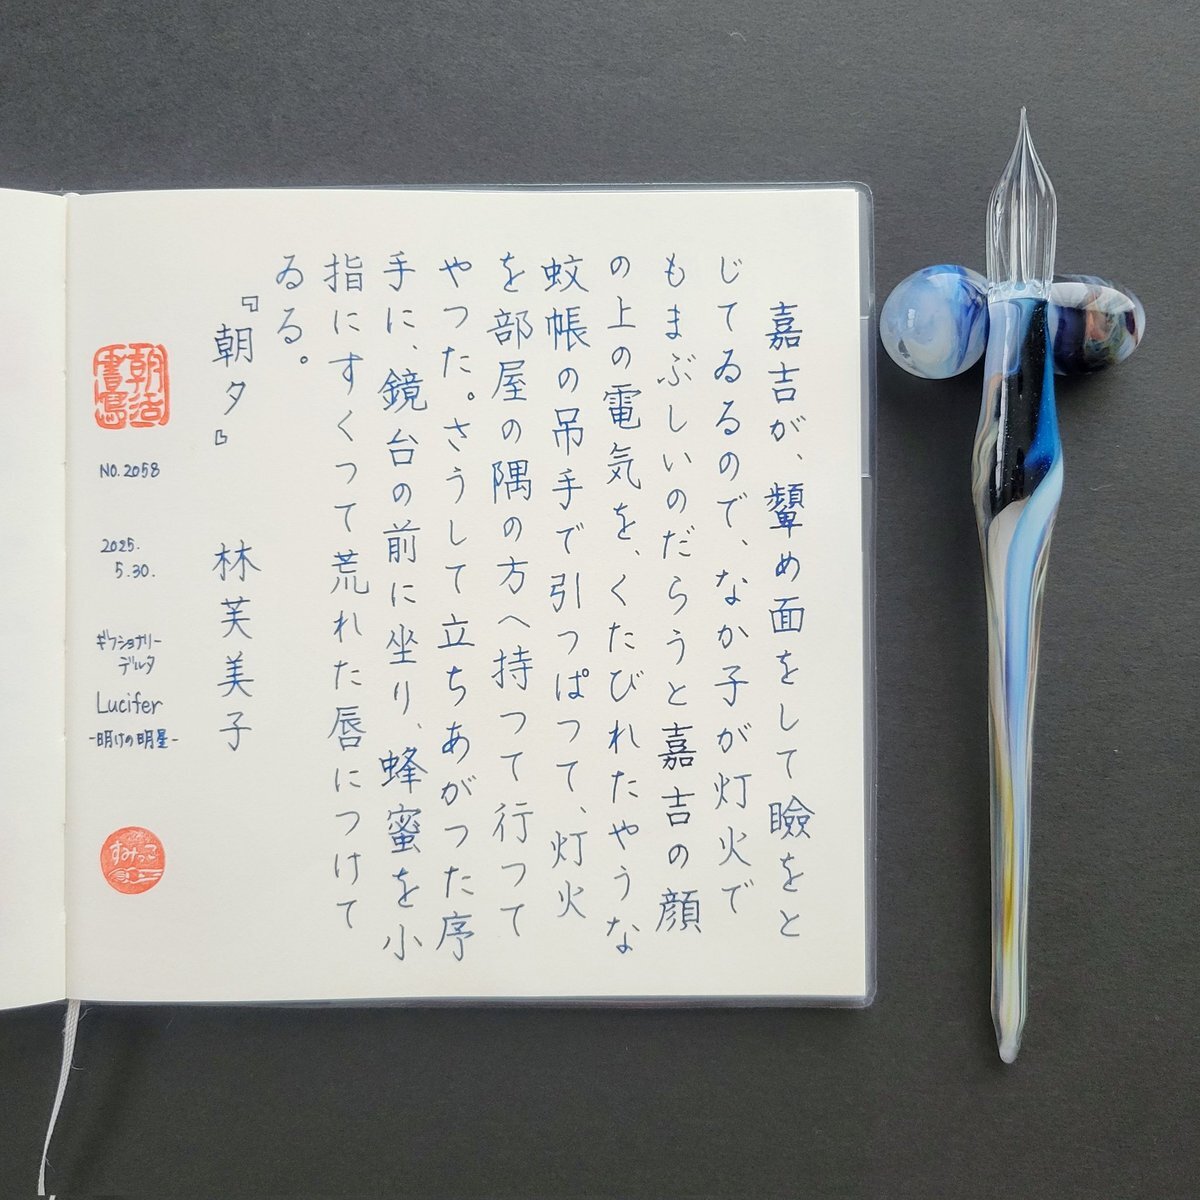 嘉吉が、顰め面をして瞼をと
じてゐるので、なか子が灯火で
もまぶしいのだらうと嘉吉の顔
の上の電気を、くたびれたやうな
蚊帳の吊手で引つぱつて、灯火
を部屋の隅の方へ持つて行つて
やつた。さうして立ちあがつた序
手に、鏡台の前に坐り、蜂蜜を小
指にすくつて荒れた唇につけて
ゐる。
『朝夕』 林芙美子
朝活書写
NO.2058
2025.
5.30.
ギフショナリー
デルタ
Lucifer
-明けの明星-
すみっこ